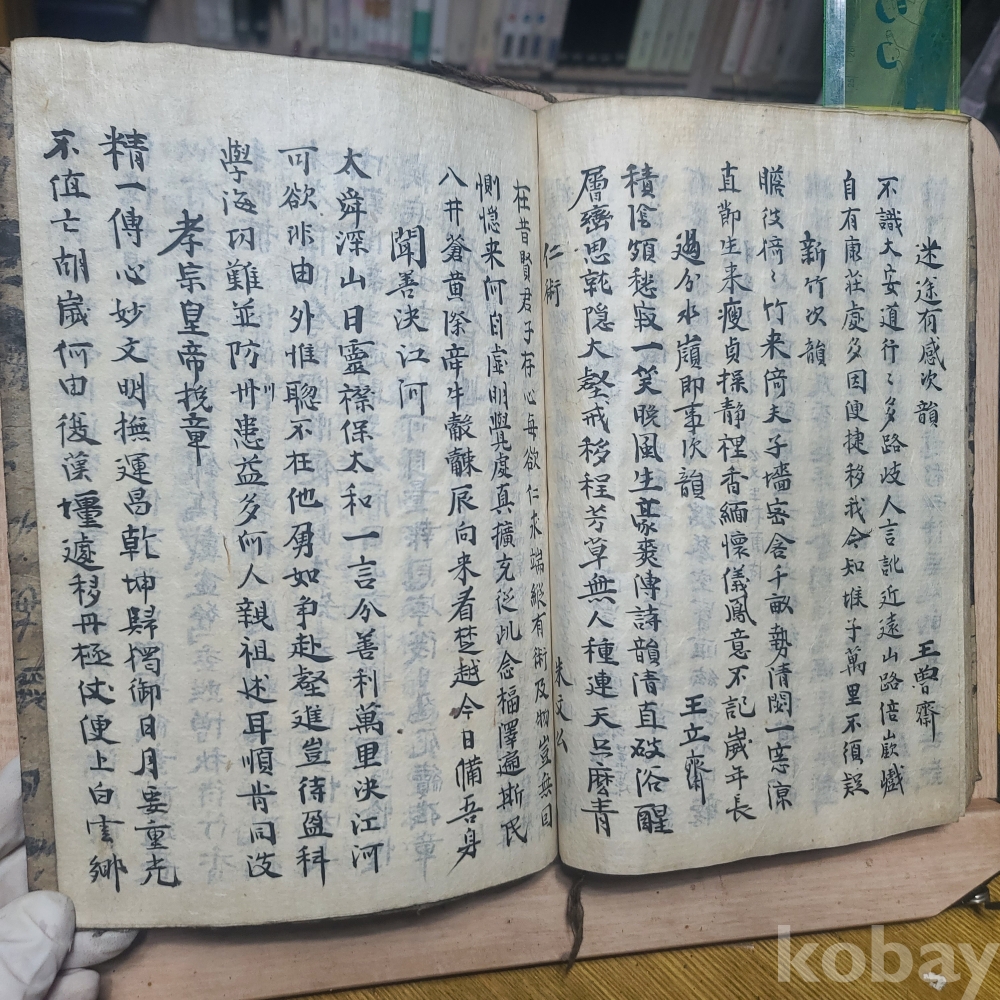 迷途有感次韻 王魯齋
不識大安道行〻多路歧人言訛近遠山路倍嶇巇
自有康莊處多因便捷移我今知堠子萬里不須疑
新竹次韻
瞻彼猗〻竹来倚夫子墻密含千畝勢清閟一窓涼
直節生来瘦貞操静裡香緬懷儀鳳意不記歲年長
過分水嶺即事次韻 王立齋
積陰領愁寂一笑晚風生豪爽傳詩韻清直破俗醒
層巒思就隐大壑戒移程芳草無人種連天只麽青
仁術 朱文公
在昔賢君子存心每欲仁求端縱有術及物豈無因
惻𢙢来何自虛明覺處真擴充從此念福澤遍斯民
八井蒼黄際牵牛觳觫辰向来看楚越今日備吾身
聞善決江河
大舜深山日靈襟保太和一言分善利萬里決江河
可欲非由外惟聡不在他勇如争赴壑進豈待盈科
學海功難並防川患益多何人親祖述耳順肯同波
孝宗皇帝挽章
精一傳心妙文明撫運昌乾坤歸獨御日月要重光
不值亡胡歲何由復漢壃遽移丹極仗便上白雲鄉
kobay